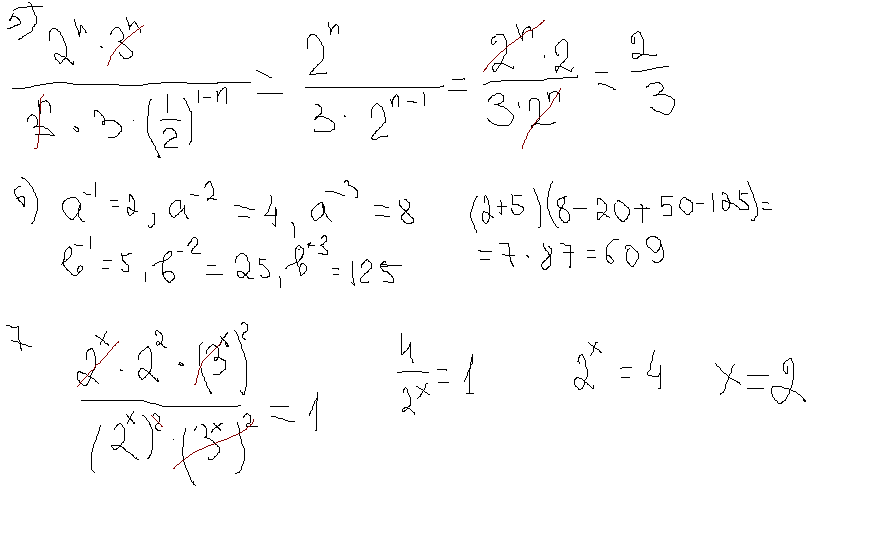 5) (2ⁿ · 3ⁿ) / (3ⁿ · 3 · (1/2)¹⁻ⁿ) = 2ⁿ / (3 · 2ⁿ⁻¹) = (2ⁿ · 2) / (3 · 2ⁿ) = 2/3
6) a⁻¹ = 2, a⁻² = 4, a⁻³ = 8 (2+5)(8-20+50-125)=
b⁻¹ = 5, b⁻² = 25, b⁻³ = 125 = 7 · 87 = 609
7 (2ˣ · 2² · (3ˣ)²) / ((2ˣ)² · (3ˣ)²) = 1 4/2ˣ = 1 2ˣ = 4 x = 2